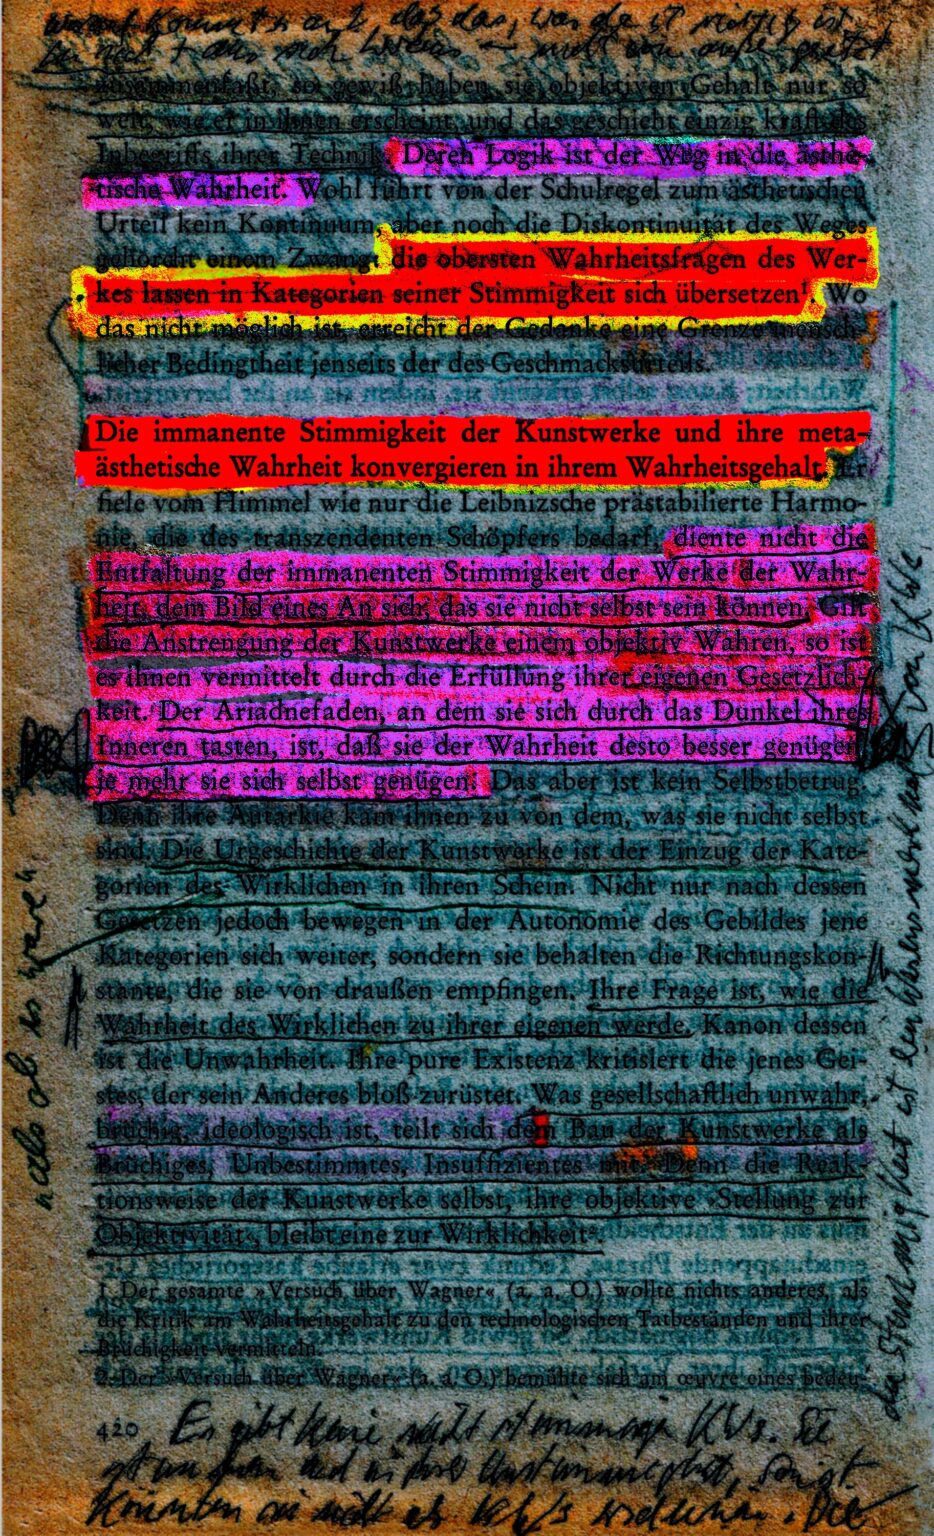 zusammenfaßt, so gewiß haben sie objektiven Gehalt nur so
weit, wie er in ihnen erscheint, und das geschieht einzig kraft des
Inbegriffs ihrer Technik. Deren Logik ist der Weg in die ästhe-
tische Wahrheit. Wohl führt von der Schulregel zum ästhetischen
Urteil kein Kontinuum, aber noch die Diskontinuität des Weges
gehorcht einem Zwang: die obersten Wahrheitsfragen des Wer-
kes lassen in Kategorien seiner Stimmigkeit sich übersetzen¹. Wo
das nicht möglich ist, erreicht der Gedanke eine Grenze mensch-
licher Bedingtheit jenseits der des Geschmacksurteils.
Die immanente Stimmigkeit der Kunstwerke und ihre meta-
ästhetische Wahrheit konvergieren in ihrem Wahrheitsgehalt. Er
fiele vom Himmel wie nur die Leibnizsche prästabilierte Harmo-
nie, die des transzendenten Schöpfers bedarf, diente nicht die
Entfaltung der immanenten Stimmigkeit der Werke der Wahr-
heit, dem Bild eines An sich, das sie nicht selbst sein können. Gilt
die Anstrengung der Kunstwerke einem objektiv Wahren, so ist
es ihnen vermittelt durch die Erfüllung ihrer eigenen Gesetzlich-
keit. Der Ariadnefaden, an dem sie sich durch das Dunkel ihres
Inneren tasten, ist, daß sie der Wahrheit desto besser genügen,
je mehr sie sich selbst genügen. Das aber ist kein Selbstbetrug.
Denn ihre Autarkie kam ihnen zu von dem, was sie nicht selbst
sind. Die Urgeschichte der Kunstwerke ist der Einzug der Kate-
gorien des Wirklichen in ihren Schein. Nicht nur nach dessen
Gesetzen jedoch bewegen in der Autonomie des Gebildes jene
Kategorien sich weiter, sondern sie behalten die Richtungskon-
stante, die sie von draußen empfingen. Ihre Frage ist, wie die
Wahrheit des Wirklichen zu ihrer eigenen werde. Kanon dessen
ist die Unwahrheit. Ihre pure Existenz kritisiert die jenes Gei-
stes, der sein Anderes bloß zurüstet. Was gesellschaftlich unwahr,
brüchig, ideologisch ist, teilt sich dem Bau der Kunstwerke als
Brüchiges, Unbestimmtes, Insuffizientes mit. Denn die Reak-
tionsweise der Kunstwerke selbst, ihre objektive »Stellung zur
Objektivität«, bleibt eine zur Wirklichkeit².
1 Der gesamte »Versuch über Wagner« (a. a. O.) wollte nichts anderes, als
die Kritik am Wahrheitsgehalt zu den technologischen Tatbeständen und ihrer
Brüchigkeit vermitteln.
2 Der »Versuch über Wagner« (a. a. O.) bemühte sich am œuvre eines bedeu-
420
Es gibt keine nicht stimmige KWs. Sie